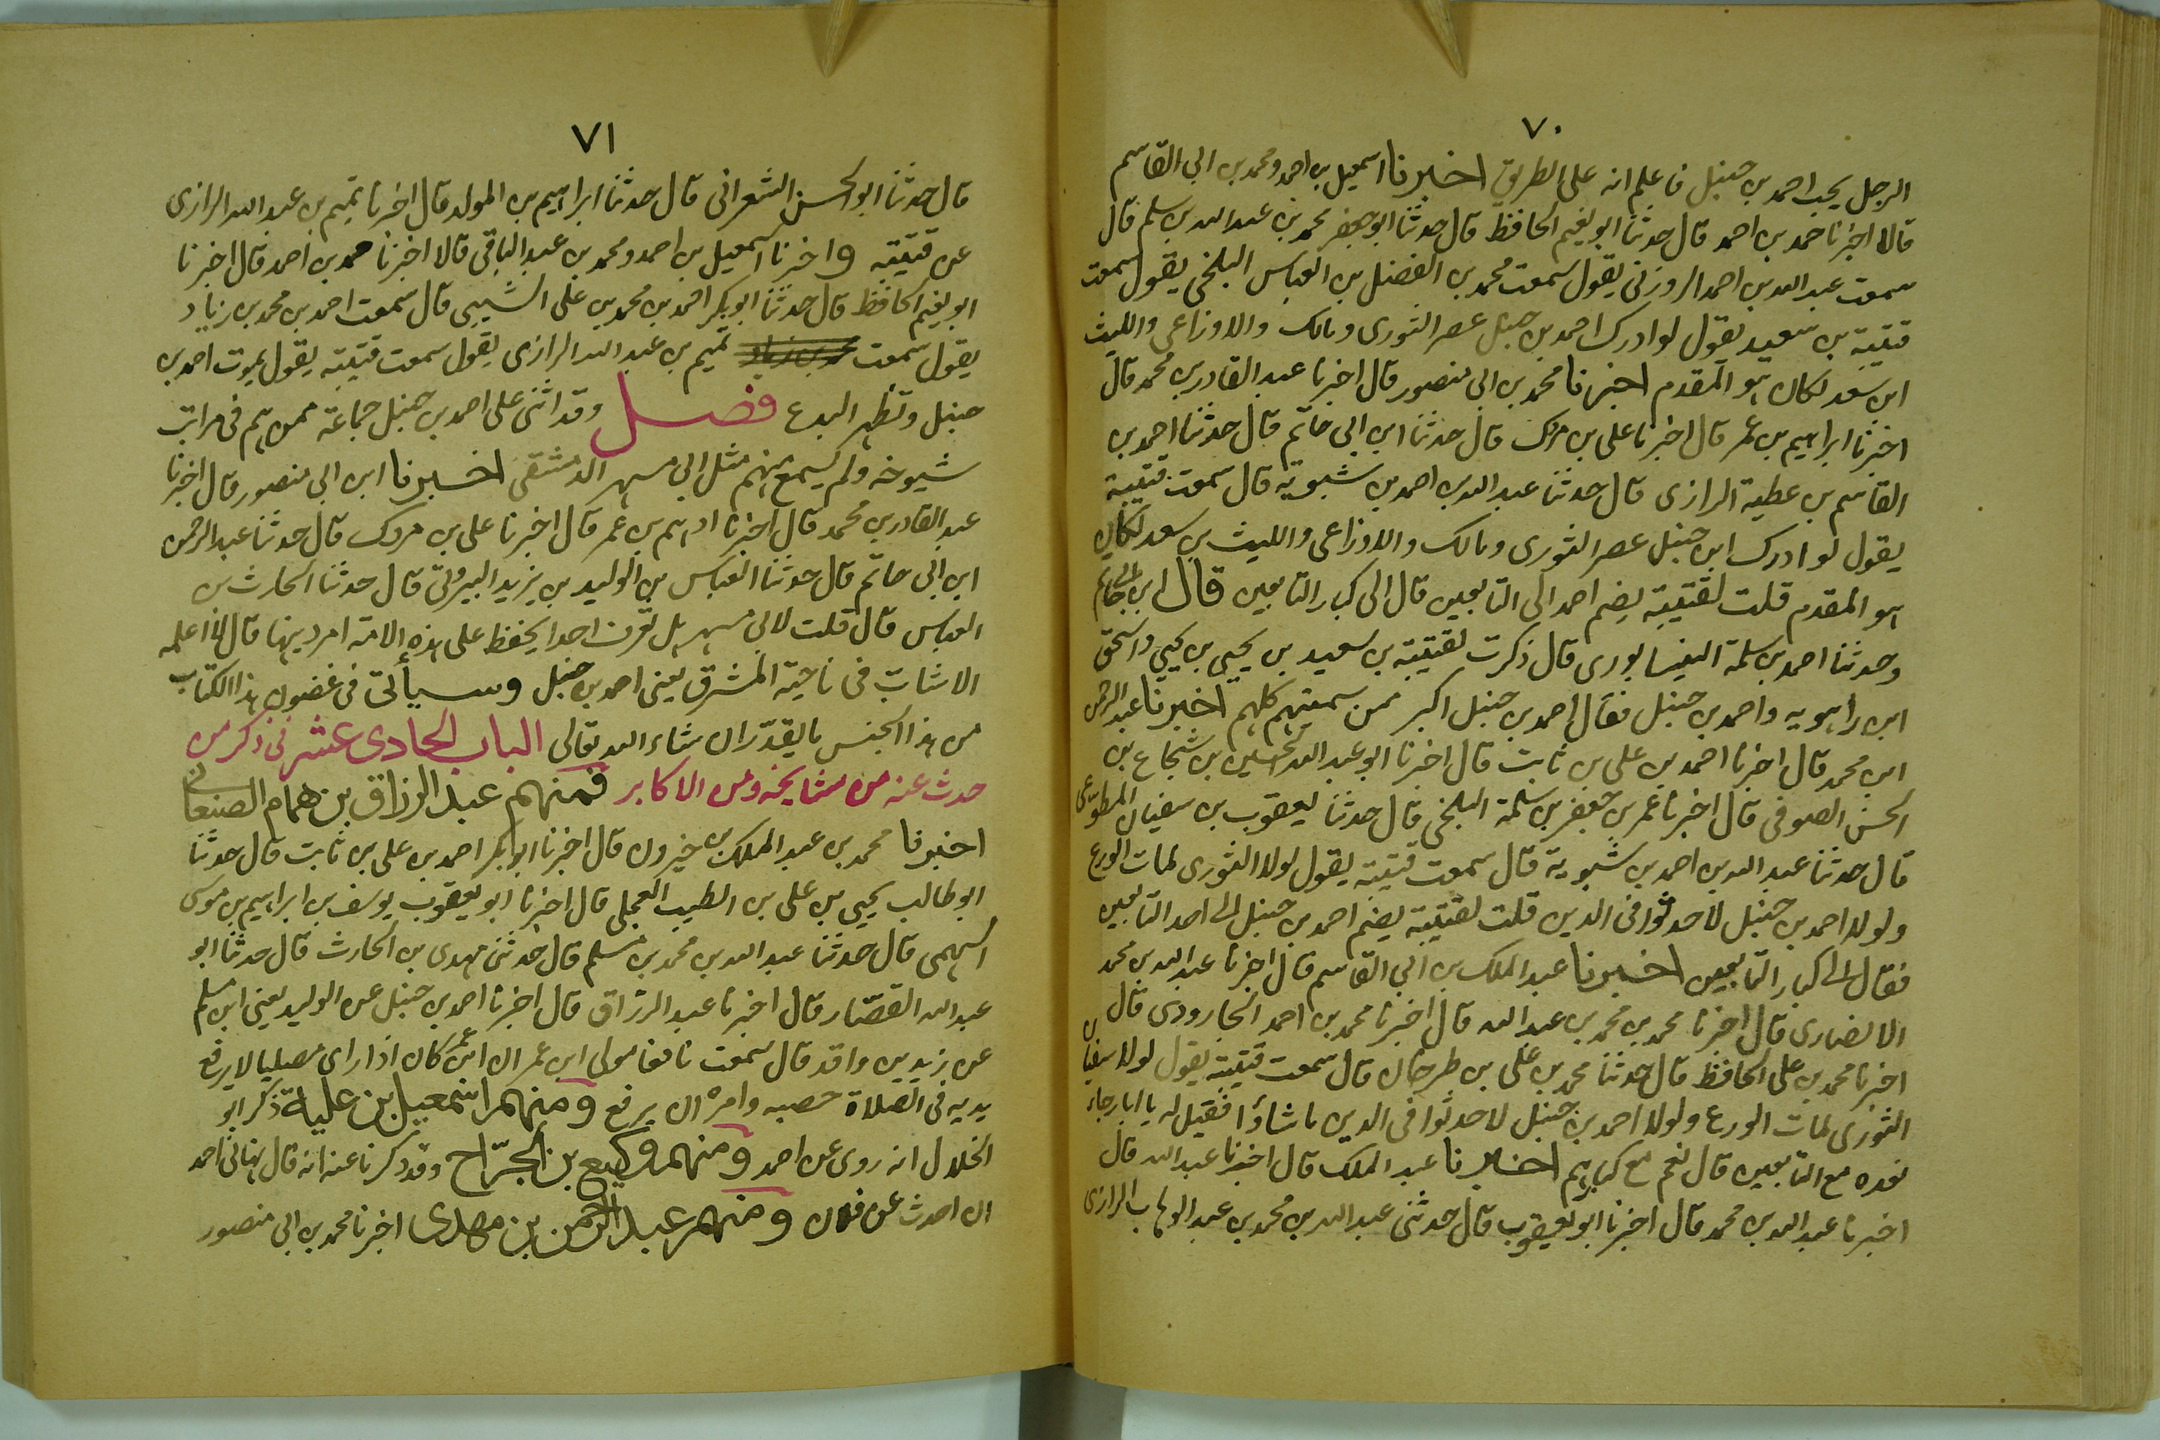 ٧٠
الرجل يحب احمد بن حنبل فاعلم انه على الطريق اخبرنا اسمعيل بن احمد ومحمد بن ابى القاسم
قالا اخبرنا حمد بن احمد قال حدثنا ابو نعيم الحافظ قال حدثنا ابو جعفر محمد بن عبد الله بن سلم قال
سمعت عبد الله بن احمد الزوزنى يقول سمعت محمد بن الفضل بن العباس البلخى يقول سمعت
قتيبة بن سعيد يقول لو ادرك احمد بن حنبل عصر الثورى ومالك والاوزاعى والليث
ابن سعد لكان هو المقدم اخبرنا محمد بن ابى منصور قال اخبرنا عبد القادر بن محمد قال
اخبرنا ابراهيم بن عمر قال اخبرنا على بن مردك قال حدثنا ابن ابى حاتم قال حدثنا احمد بن
القاسم بن عطية الرازى قال حدثنا عبد الله بن احمد بن شبوية قال سمعت قتيبة
يقول لو ادرك ابن حنبل عصر الثورى ومالك والاوزاعى والليث بن سعد لكان
هو المقدم قلت لقتيبة يضم احمد الى التابعين قال الى كبار التابعين قال ابن ابى حاتم
وحدثنا احمد بن سلمة النيسابورى قال ذكرت لقتيبة بن سعيد بن يحيى بن يحيى واسحق
ابن راهويه واحمد بن حنبل فقال احمد بن حنبل اكبر ممن سميتهم كلهم اخبرنا عبد الرحمن
ابن محمد قال اخبرنا احمد بن على بن ثابت قال اخبرنا ابو عبد الله الحسين بن شجاع بن
الحسن الصوفى قال اخبرنا عمر بن جعفر بن سلمة البلخى قال حدثنا يعقوب بن سفيان المطوعى
قال حدثنا عبد الله بن احمد بن شبوية قال سمعت قتيبة يقول لولا الثورى لمات الورع
ولولا احمد بن حنبل لاحدثوا فى الدين قلت لقتيبة يضم احمد بن حنبل الى احد التابعين
فقال الى كبار التابعين اخبرنا عبد الملك بن ابى القاسم قال اخبرنا عبد الله بن محمد
الانصارى قال اخبرنا محمد بن محمد بن عبد الله قال اخبرنا محمد بن احمد الجارودى قال
اخبرنا محمد بن على الحافظ قال حدثنا محمد بن على بن طرخان قال سمعت قتيبة يقول لولا سفيان
الثورى لمات الورع ولولا احمد بن حنبل لاحدثوا فى الدين ما شاؤا فقيل له يا ابا رجاء
نعده مع التابعين قال نعم مع كبارهم اخبرنا عبد الملك قال اخبرنا عبد الله قال
اخبرنا عبد الله بن محمد قال اخبرنا ابو يعقوب قال حدثنى عبد الله بن محمد بن عبد الوهاب الرازى
٧١
قال حدثنا ابو الحسن الشعرانى قال حدثنا ابراهيم بن المولد قال اخبرنا تميم بن عبد الله الرازى
عن قتيبة واخبرنا اسمعيل بن احمد ومحمد بن عبد الباقى قالا اخبرنا حمد بن احمد قال اخبرنا
ابو نعيم الحافظ قال حدثنا ابو بكر احمد بن محمد بن على الشيبى قال سمعت احمد بن محمد بن زياد
يقول سمعت تميم بن عبد الله الرازى يقول سمعت قتيبة يقول يموت احمد بن
حنبل وتظهر البدع فصل وقد اثنى على احمد بن حنبل جماعة ممن هم فى مراتب
شيوخه ولم يسمع منهم مثل ابى مسهر الدمشقى اخبرنا ابن ابى منصور قال اخبرنا
عبد القادر بن محمد قال اخبرنا ابراهيم بن عمر قال اخبرنا على بن مردك قال حدثنا عبد الرحمن
ابن ابى حاتم قال حدثنا العباس بن الوليد بن يزيد البيروتى قال حدثنا الحارث بن
العباس قال قلت لابى مسهر هل تعرف احدا يحفظ على هذه الامة امر دينها قال لا اعلمه
الا شاب فى ناحية المشرق يعنى احمد بن حنبل وسيأتى فى غضون هذا الكتاب
من هذا الجنس ما يقدّر ان شاء الله تعالى الباب الحادى عشر فى ذكر من
حدث عنه من مشايخه ومن الاكابر فمنهم عبد الرزاق بن همام الصنعانى
اخبرنا محمد بن عبد الملك بن خيرون قال اخبرنا ابو بكر احمد بن على بن ثابت قال حدثنا
ابو طالب يحيى بن على بن الطيب العجلى قال اخبرنا ابو يعقوب يوسف بن ابراهيم بن موسى
السهمى قال حدثنا عبد الله بن محمد بن مسلم قال حدثنى مهدى بن الحارث قال حدثنا ابو
عبد الله القصّار قال اخبرنا عبد الرزاق قال اخبرنا احمد بن حنبل عن الوليد يعنى ابن مسلم
عن زيد بن واقد قال سمعت نافعا مولى ابن عمر ان ابن عمر كان اذا راى مصليا لا يرفع
يديه فى الصلاة حصبه وامره ان يرفع ومنهم اسمعيل بن علية ذكر ابو
الخلال انه روى عن احمد ومنهم وكيع بن الجرّاح وقد ذكرنا عنه انه قال نهانى احمد
ان احدث عن فلان ومنهم عبد الرحمن بن مهدى اخبرنا محمد بن ابى منصور